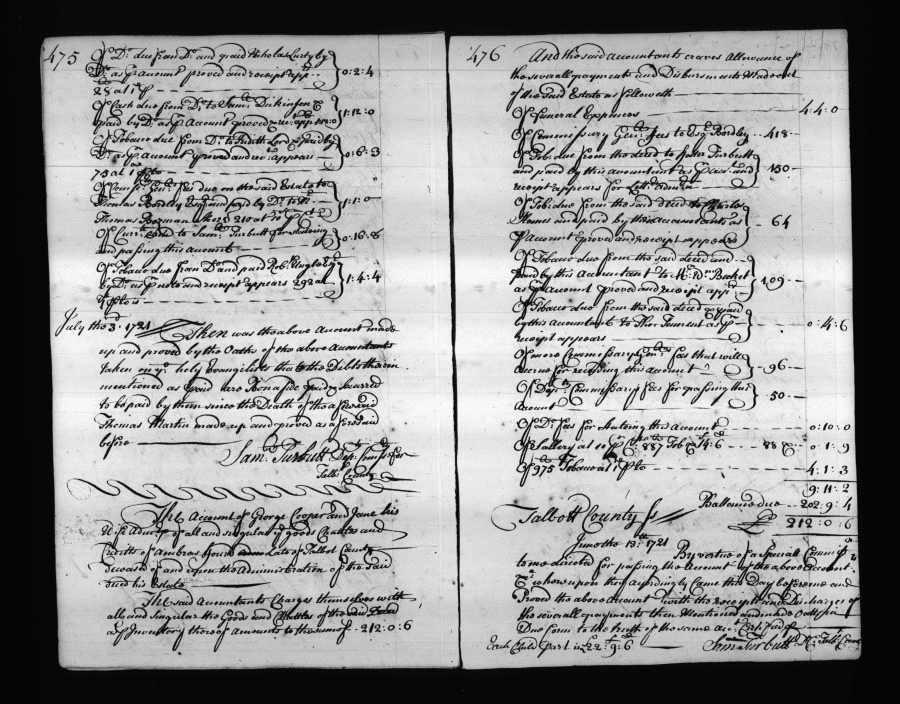 475
Of Do. due from Do. and paid Nicholas Lurty by
Do. as pr. Account proved and receipt app.
28 at 1d. P 0:2:4
Of Cash due from Do. to Sam. Dickinson &
paid by Do. as pr. Account proved & re. app. 1:12:0
Of Tobacco due from Do. to Judith Lord & paid by
Do. as pr. account proved and re. appears 0:6:3
75 at 1d. pr. lb
Of Com. Gen. fees due on the said Estate to
Thomas Bordley Esq. and paid by Do. to
Thomas Bozman 210 at 1:1:0
Of Curr. to Sam. Turbutt for Stating
and passing this account 0:16:8
Of Tobacco due from Do. and paid Rob. by
by Do. as pr. note and receipt appears 292 at 1:4:4
July the 3d. 1721 Then was the above Account made
up and proved by the Oaths of the above Accountants
taken on ye. holy Evangelists that the Debts therein
mentioned as paid are Bona fide paid & Secured
to be paid by them since the Death of the aforesaid
Thomas Martin made up and proved as aforesaid
before
Sam. Turbutt Dep. Com. for
Talb. County
The Account of George Cooper and Jane his
Wife Adm. of all and singular ye goods Chattles and
Credits of Ambros late of Talbot County
deceased of and upon the Administration of the said
Estate
The said Accountants Charges themselves with
all and singular the Goods and Chattles of the said Deced
as pr. Inventory thereof Amounts to the sum of 212:0:6
476
And the said accountants craves Allowance of
the severall payments and Disbursments Made out
of the said Estate as followeth
Of funeral Expences 4:4:0
Of Commissary Gen. fees to Esq. Bordley 418
Of Tob. due from the deced to Turbutt
and paid by this accountant as pr. acct. and
receipt appears for Lett. Adm. 150
Of Tob. due from the said deced to Charles
and paid by this Accountant as
pr. Account proved and receipt appears 64
Of Tobacco due from the said deced and
paid by this Accountant to
as pr. Account proved and receipt app. 109
Of Tobacco due from the said deced & paid
by this Accountant to Thos. as pr.
receipt appears 0:4:6
Of more Commissary Gen. fees that will
accrue for recording this account 96
Of Dep. Commissarys fees for passing this
Account 50
Of Do. fees for Stateing this Account 0:10:0
Of Sallery at 10 pr. Ct. on 887 Tob. 88 0:1:9
Of 975 Tobacco at 1d. pr. lb 4:1:3
9:11:2
Ballance due 202:9:4
£ 212:0:6
Talbott County ss
June the 13th 1721 By vertue of a Speciall Commiss.
to me directed for passing the Account of the above Account.
whereupon they accordingly Came this Day before me and
Proved the above Account with the receipts and Discharges of
the severall payments then Mentioned and made Oath in
Due form to the truth of the same as Certified pr.
Each Child part is £22:9:6 Sam Turbutt D. C. Talb. County